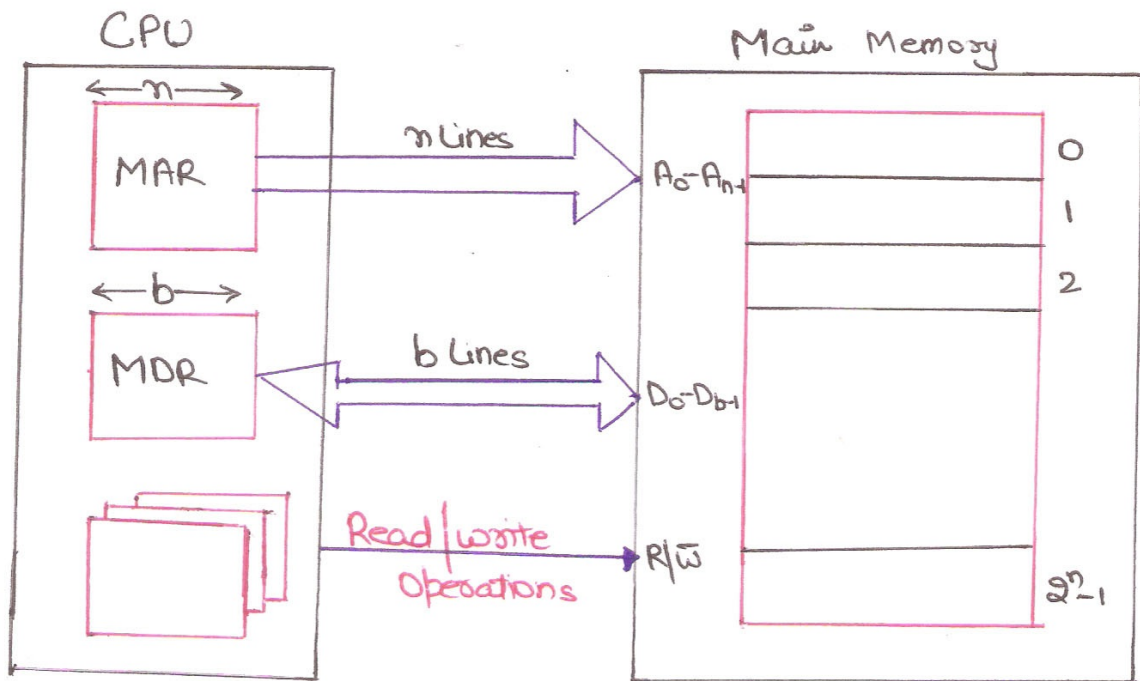 CPU
Main Memory
n
MAR
n Lines
A₀-Aₙ₋₁
0
1
2
b
MDR
b Lines
D₀-D_b-1
Read/write
operations
R/w̄
2ⁿ-1